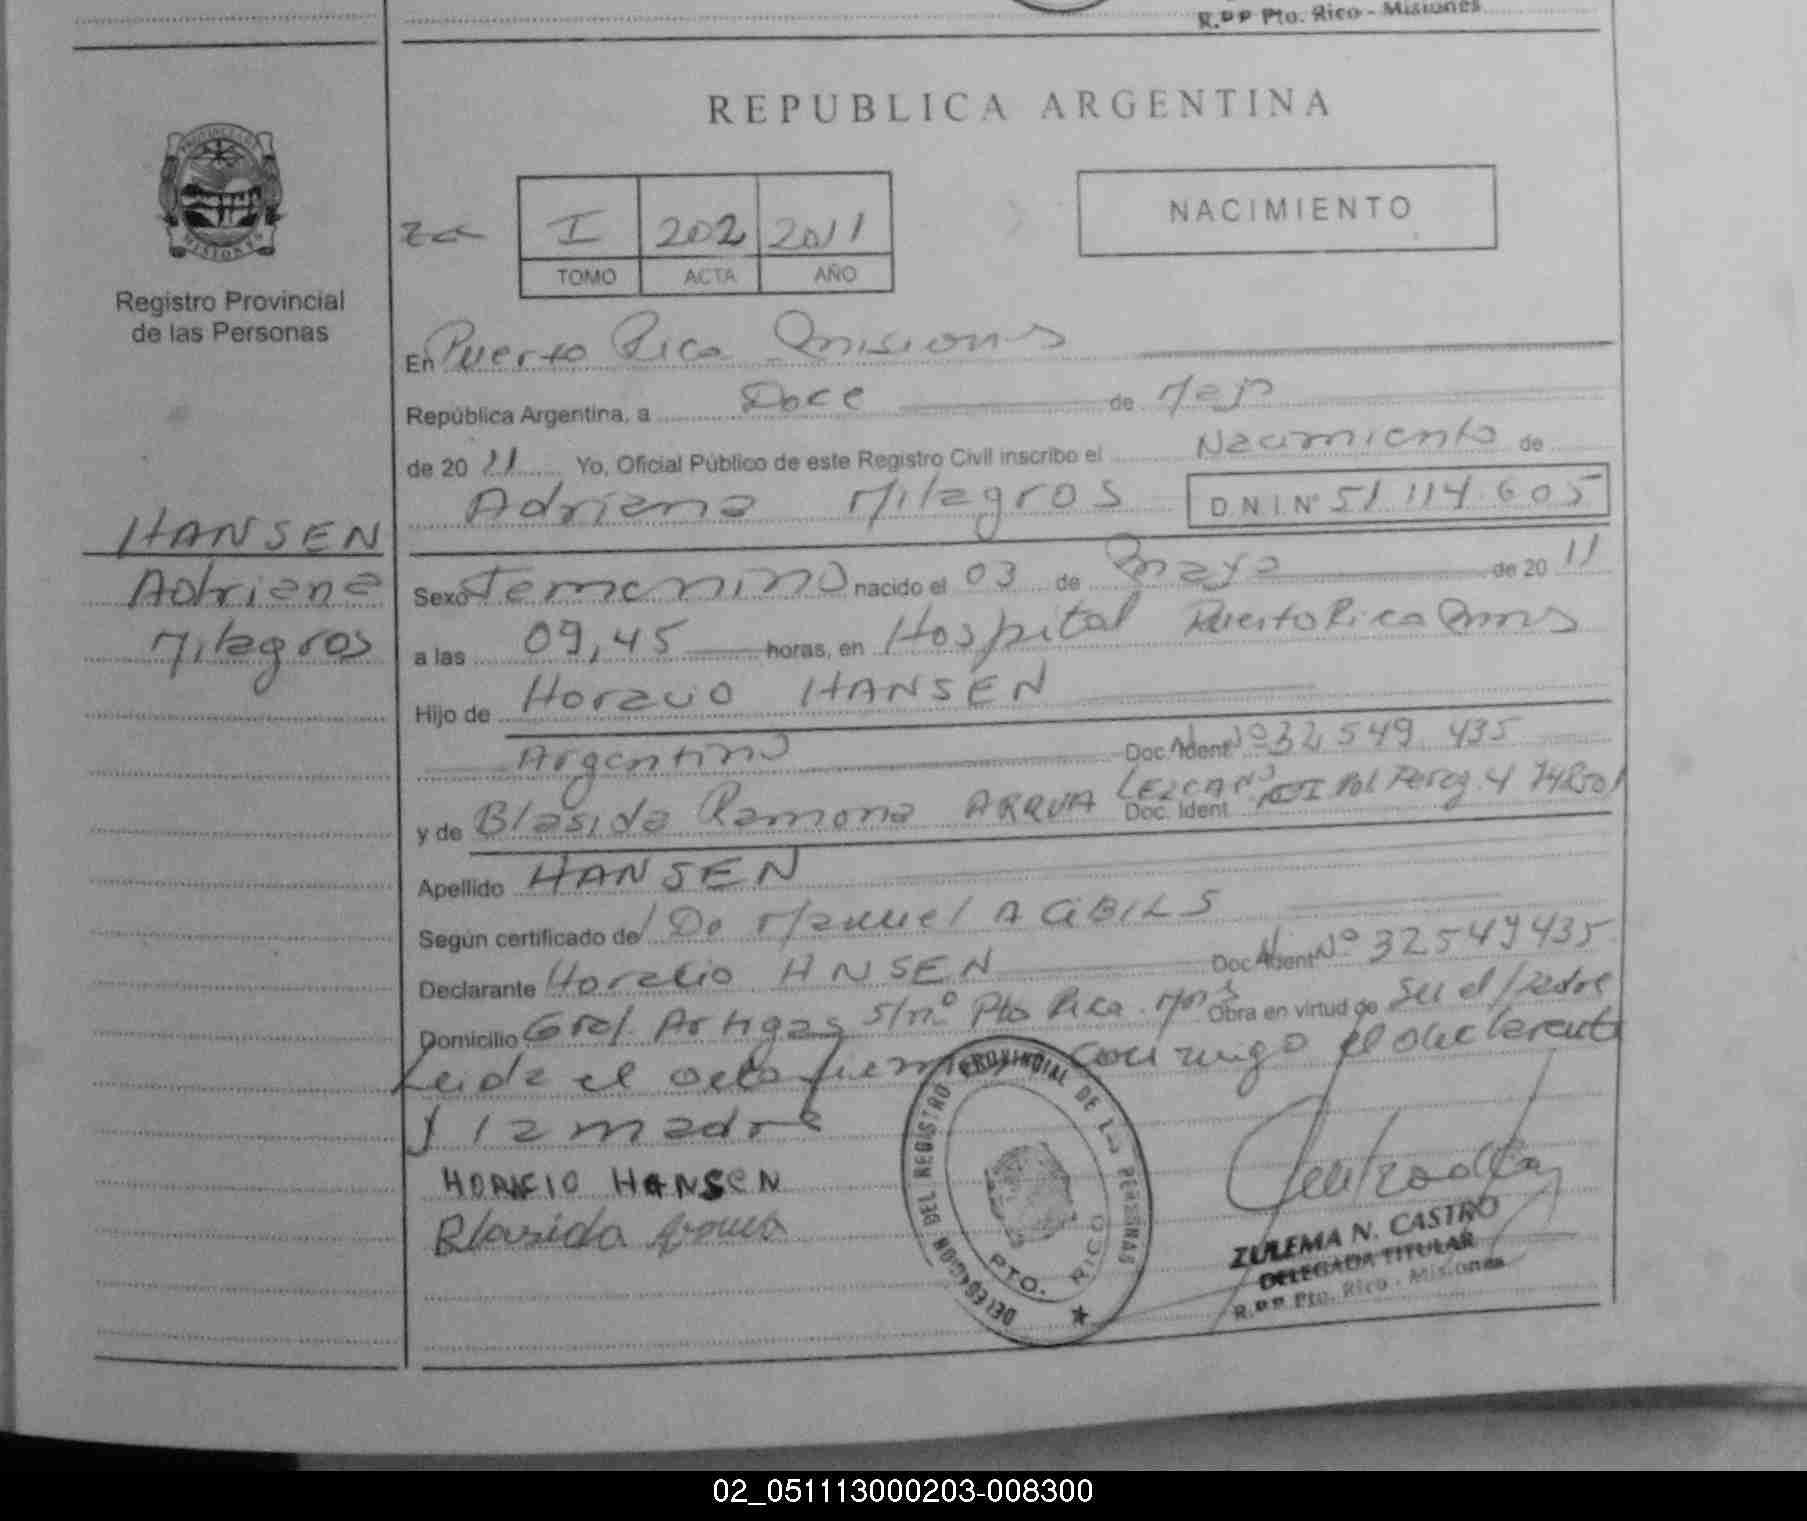 R.P.P. Pto. Rico - Misiones
REPUBLICA ARGENTINA
PROVINCIA DE
MISIONES
Registro Provincial
de las Personas
I 202 2011
TOMO ACTA AÑO
NACIMIENTO
En Puerto Rico Misiones
República Argentina, a Doce de
de 20 11 Yo, Oficial Público de este Registro Civil inscribo el Nacimiento de
Adriana Milagros D.N.I.Nº 51.114.605
HANSEN
Adriana
Milagros
Sexo Femenino nacido el 03 de Mayo de 20 11
a las 09,45 horas, en Hospital Puerto Rico Mnes
Hijo de Horacio HANSEN
Argentino Doc. Ident Nº 32 549 435
y de Blasida Ramona ARRUA LEZCANO Doc. Ident. CI Pol
Apellido HANSEN
Según certificado de/ Do Manuel A CIBILS
Declarante Horacio HNSEN Doc. Ident Nº 32549435
Domicilio Gral. Artigas s/nº Pto Rico. Mns Obra en virtud de Su d/padre
Leida el acta firman conmigo el declarante
y la madre
HORACIO HANSEN
Blasida Arrua
DELEGACION DEL REGISTRO PROVINCIAL DE LAS PERSONAS
PTO. RICO
ZULEMA N. CASTRO
DELEGADA TITULAR
R.P.P. Pto. Rico - Misiones
02_051113000203-008300